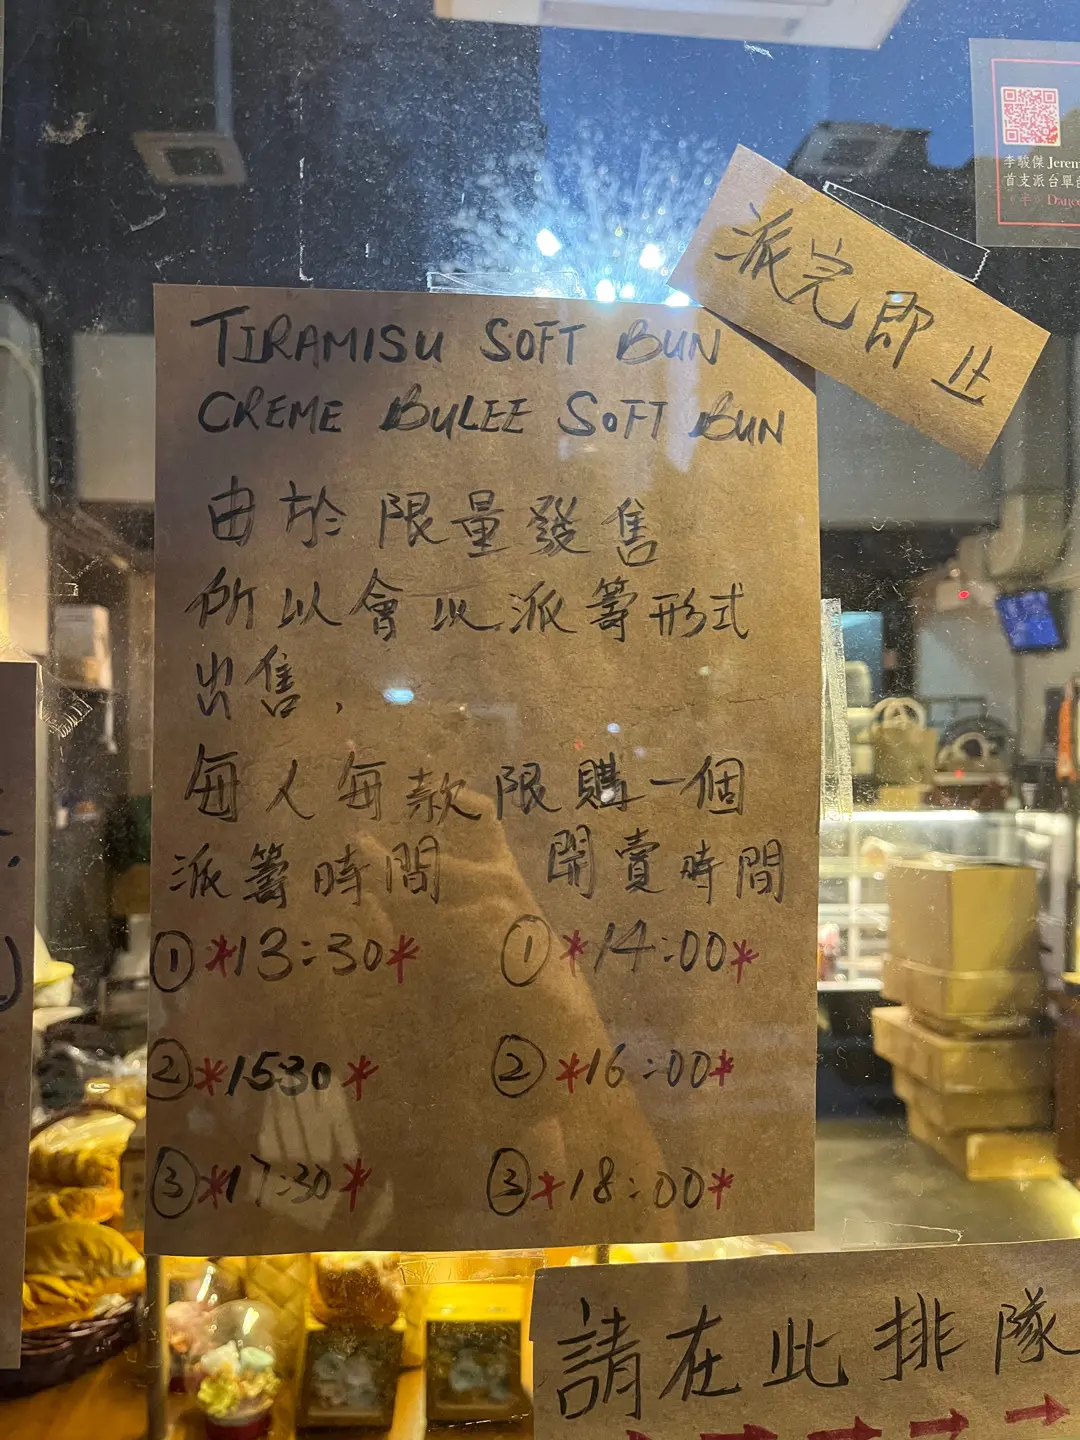 李駿傑 Jerem
首支派台單曲
Dance
派完即止
TIRAMISU SOFT BUN
CREME BULEE SOFT BUN
由於限量發售
所以會以派籌形式
出售,
每人每款限購一個
派籌時間 開賣時間
① *13:30* ① *14:00*
② *1530* ② *16:00*
③ *17:30* ③ *18:00*
請在此排隊